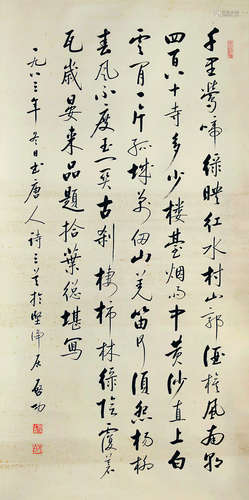 千里鶯啼綠映紅水村山郭酒旗風南朝
四百八十寺多少樓臺烟雨中黄沙直上白
雲間一片孤城萬仞山羌笛何須怨楊柳
春風不度玉門关古刹棲柿林綠陰覆蒼
瓦歲晏来品題拾葉總堪寫
一九八三年冬日書唐人詩三首於堅淨居 啟功